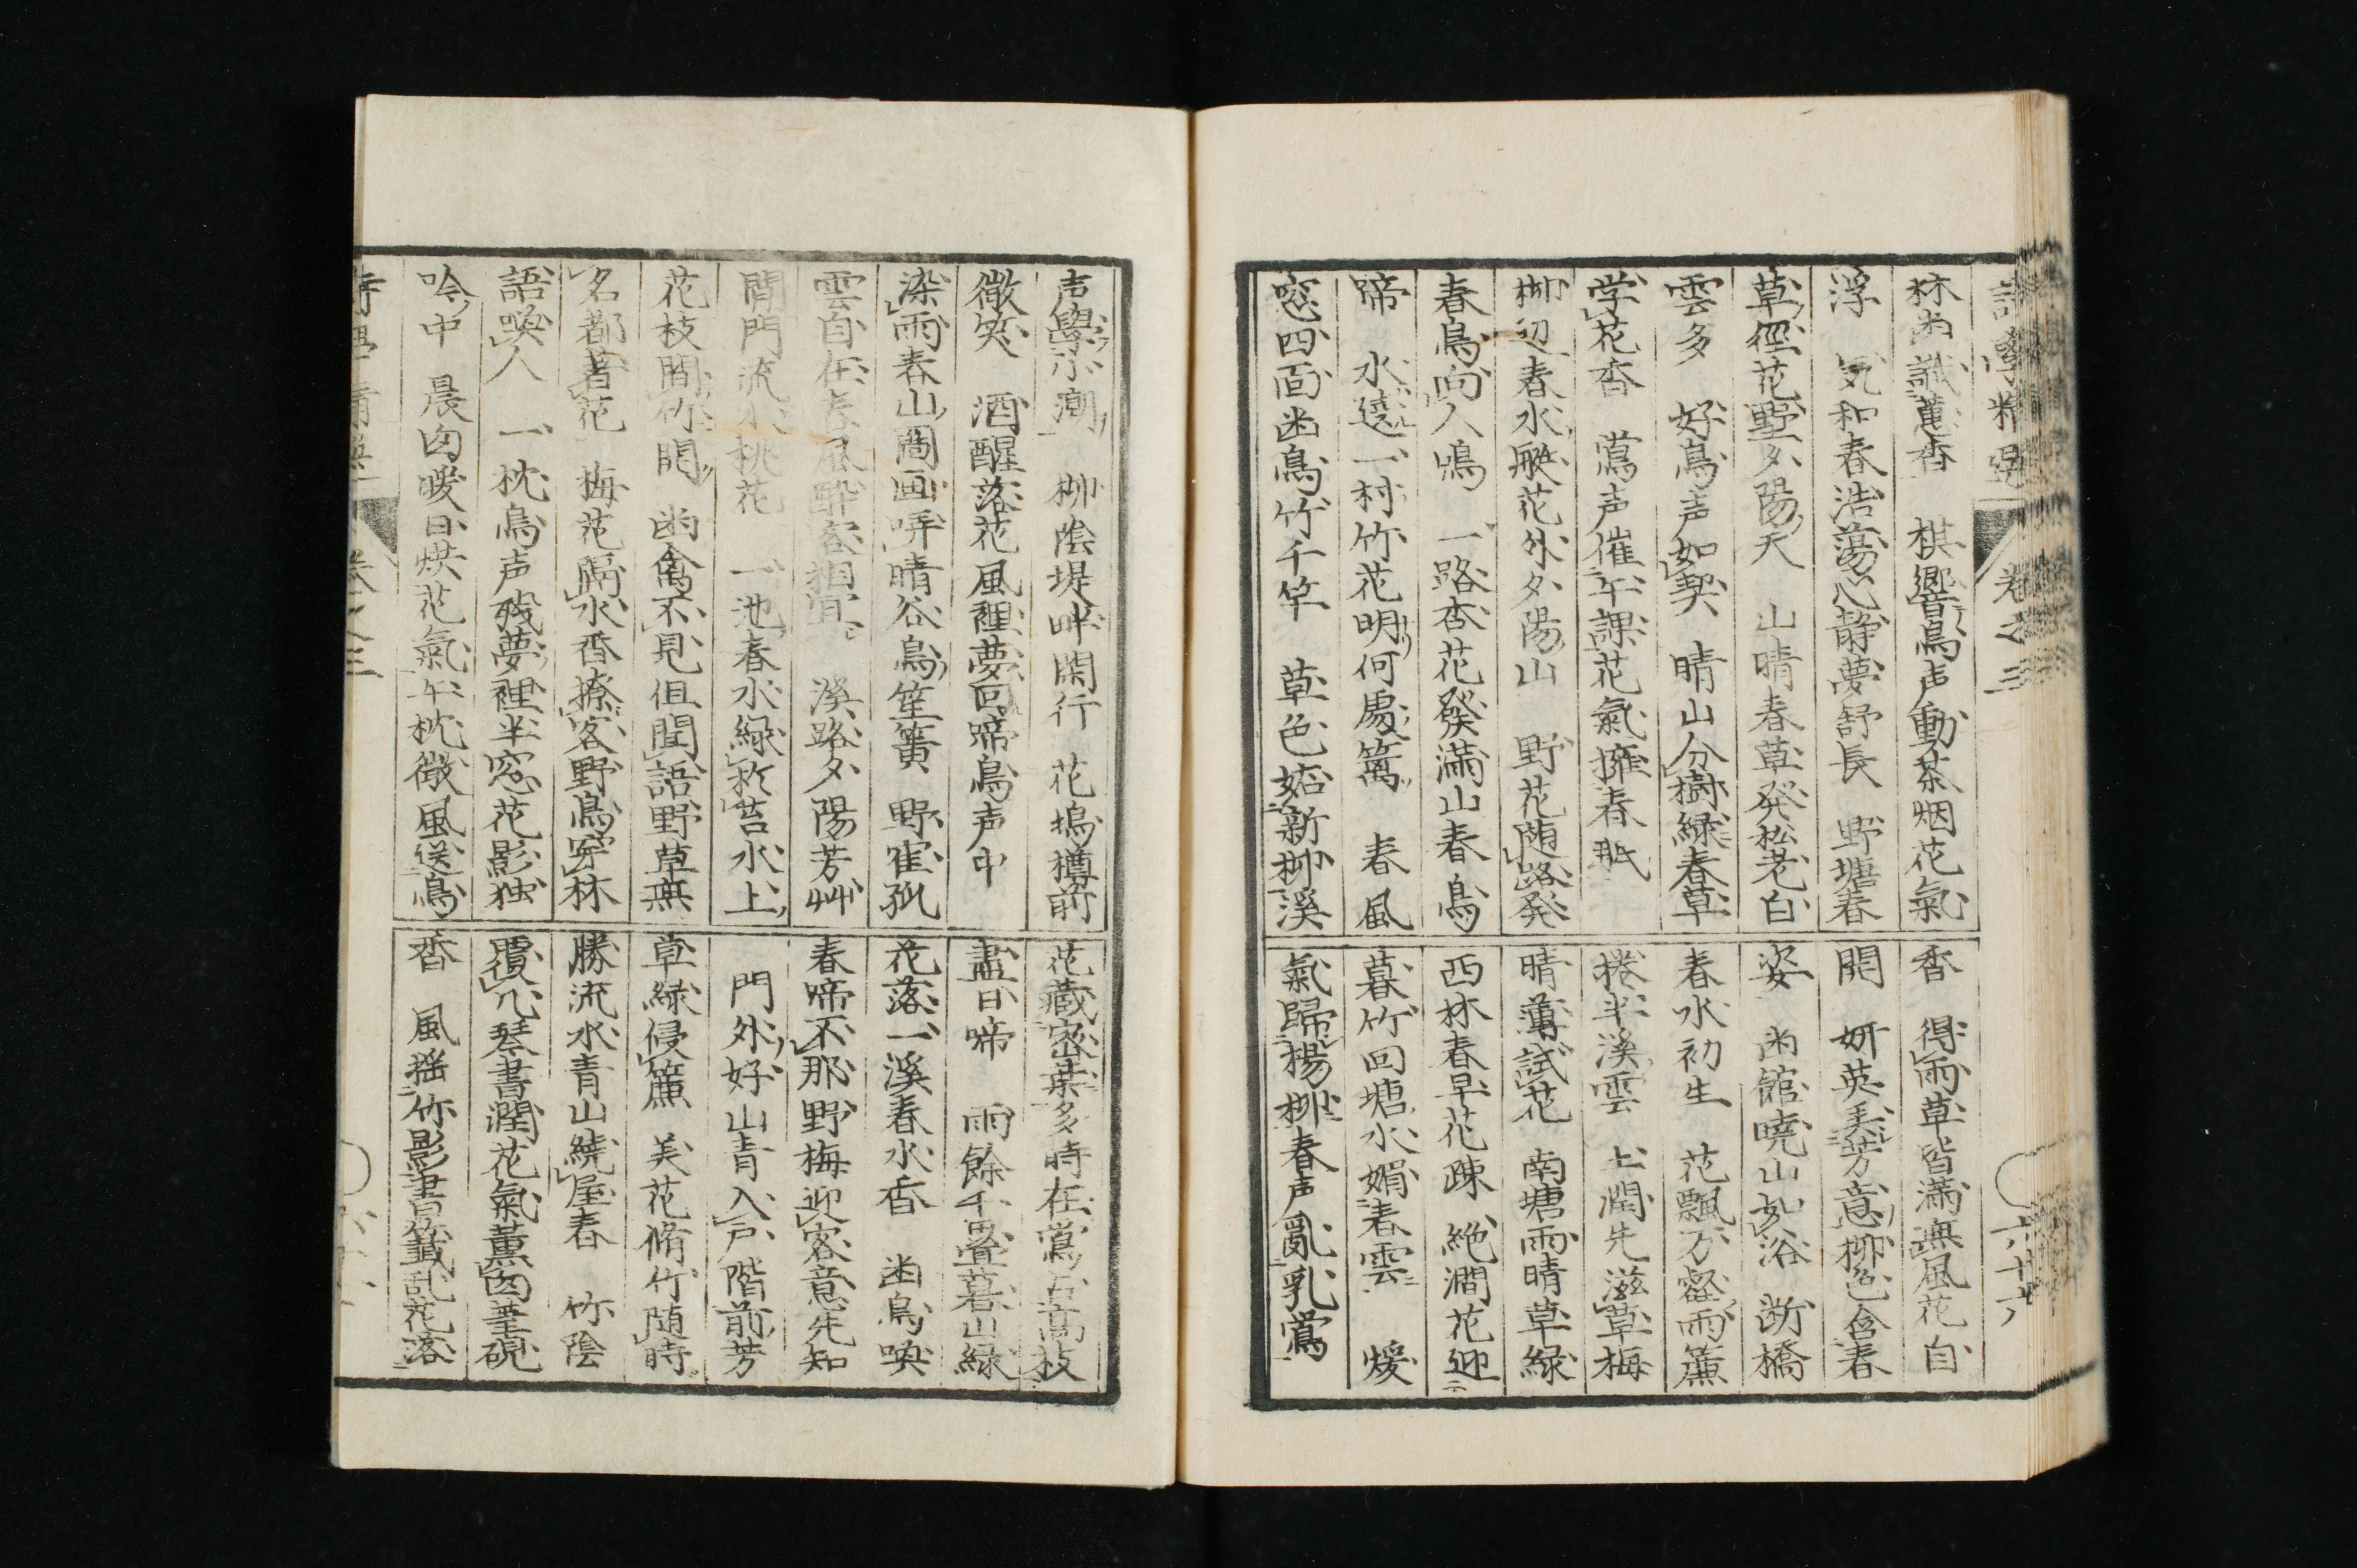 詩學精選 卷之三 六十六
林幽識蕙香 棋響鳥声動茶烟花氣
浮 気和春浩蕩心静夢舒長 野塘春
草径花野夕陽天 山晴春草発松老白
雲多 好鳥声如契 晴山分樹緑春草
学花香 鶯声催午課花氣擁春眠
柳辺春水艇花外夕陽山 野花随路発
春鳥向人鳴 一路杏花發滿山春鳥
啼 水遶一村竹花明何處篱 春風
窓四面幽鳥竹千竿 草色妬新柳溪
香 得雨草皆滿無風花自
開 妍英美芳意柳色含春
姿 幽館暁山如浴 断橋
春水初生 花飄万壑雨簾
捲半溪雲 土潤先滋草梅
晴薄試花 南塘雨晴草緑
西林春早花疎 絶澗花迎
暮竹回塘水媚春雲 煖
氣歸楊柳春声亂乳鶯
声學小潮 柳陰堤畔閑行 花塢樽前
微笑 酒醒落花風裡夢回啼鳥声中
染雨春山圖画哢晴谷鳥笙簧 野寉孤
雲自在春風酔客相宜 溪路夕陽芳艸
閒門流水桃花 一池春水緑於苔水上
花枝間竹開 幽禽不見但聞語野草無
名都著花 梅花隔水香撩客野鳥穿林
語喚人 一枕鳥声残夢裡半窓花影独
吟中 晨囱暖日烘花氣午枕微風送鳥
花藏密葉多時在鶯占高枝
盡日啼 雨餘千疊暮山緑
花落一溪春水香 幽鳥喚
春啼不那野梅迎客意先知
門外好山青入戸階前芳
草緑侵簾 美花脩竹随時
勝流水青山繞屋春 竹陰
覆几琴書潤花氣薫囱筆硯
香 風揺竹影書籤乱花落
詩學精選 卷之三